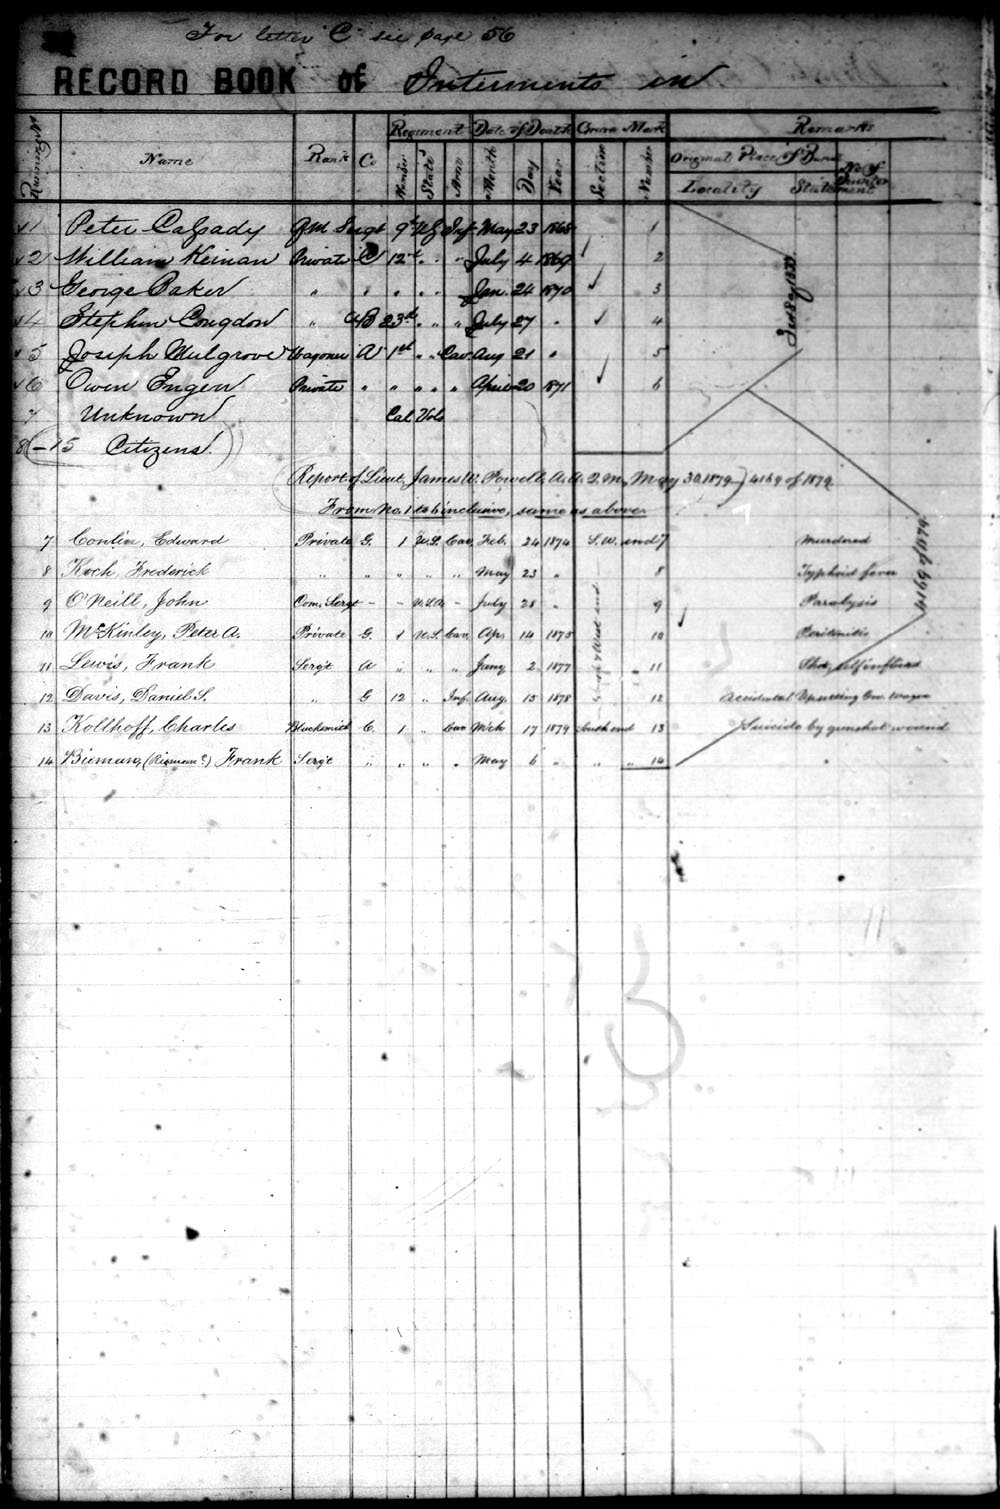 For letter "C" see page 56
RECORD BOOK of Interments in
Running No. Name Rank Co Regiment Date of Death Grave Mark Remarks
Number State Arm Month Day Year Section Number Original Place of Burial No. of
Locality Statement
1 Peter Cassady QM Sergt 9th US Inf May 23 1868 1
2 William Keinan Private C 12th " " July 4 1869 2
3 George Baker " " " " " Jan. 24 1870 3
4 Stephen Congdon " B 23rd " " July 27 " 4
5 Joseph Mulgrove Wagoner A 1st " Cav Aug 21 " 5
6 Owen Engen Private " " " " April 20 1871 6
7 Unknown Cal Vols
8 - 15 Citizens
Report of Lieut. James W. Powell, A. A. Q. M. May 30, 1879 4169 of 1879
From No. 1 to 6 inclusive, same as above
7 Conlin, Edward Private G. 1 U.S. Cav. Feb. 24 1874 S. W. end 7 Murdered
8 Koch, Frederick " " " " " May 23 " 8 Typhoid fever
9 O'Neill, John Com. Sergt - - U.S.A. - July 28 " 9 Paralysis
10 McKinley, Peter A. Private G. 1 U.S. Cav. Ap. 14 1875 10 Peritonitis
11 Lewis, Frank Sergt A " " " Jany 2 1877 " 11 Shot, self inflicted
12 Davis, Daniel S. " G 12 " Inf. Aug. 15 1878 " 12 Accidental Upsetting Gov. Wagon
13 Kollhoff, Charles Blacksmith C. 1 " Cav Mch 17 1879 South end 13 Suicide by gunshot wound
14 Bieman, (Rieman?) Frank Sergt " " " " May 6 " " " 14
South West end
4169 of 1879